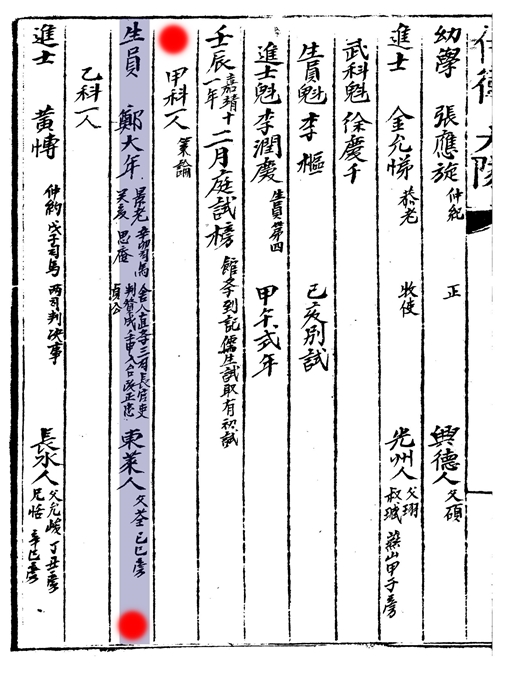 幼學 張應旋 仲紀 正 興德人 父碩
進士 金允悌 恭老 牧使 光州人 父珝 叔瑊 蘇山甲子房
武科魁 徐慶千
生員魁 李樞 己亥別試
進士魁 李潤慶 生員第四 甲午式年
壬辰 嘉靖十一年 二月庭試榜 館李到記儒生試取有初試
甲科一人 策論
生員 鄭大年 景老 辛卯司馬 吳亥 思庵 舍人直李三司長官吏判贊成壬申入台改正忠貞公 東萊人 父荃 己巳房
乙科一人
進士 黃愽 仲約 戊子司馬 兩司判决事 長水人 父允峻 丁丑房 兄恬 辛巳房